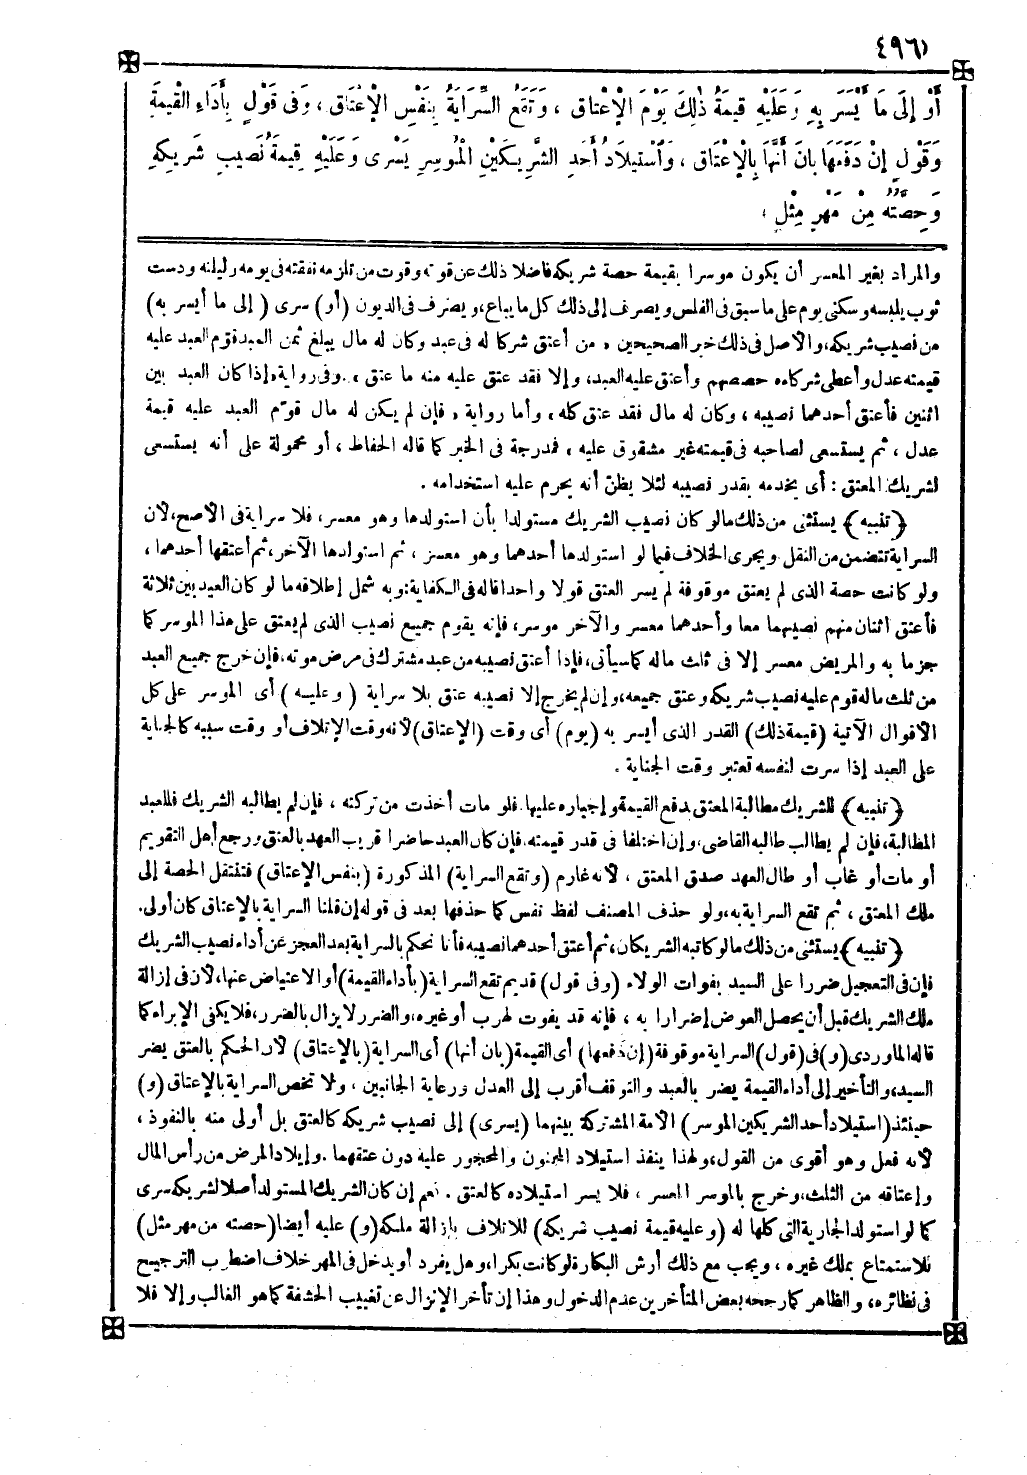 ٤٩٦
أَوْ إلَى مَا أَيْسَرَ بِهِ وَعَلَيْهِ قِيمَةُ ذٰلِكَ يَوْمَ الْإِعْتَاقِ ، وَتَقَعُ السِّرَايَةُ بِنَفْسِ الْإِعْتَاقِ ، وَفِى قَوْلٍ بِأَدَاءِ الْقِيمَةِ
وَقَوْلٍ إنْ دَفَعَهَا بَانَ أَنَّهَا بِالْإِعْتَاقِ ، وَاُسْتِيلَادُ أَحَدِ الشَّرِيكَيْنِ الْمُوسِرِ يَسْرِى وَعَلَيْهِ قِيمَةُ نَصِيبِ شَرِيكِهِ
وَحِصَّتُهُ مِنْ مَهْرِ مِثْلٍ ،
والمراد بغير المعسر أن يكون موسرا بقيمة حصة شريكه فاضلا ذلك عن قوته وقوت من تلزمه نفقته فى يومه وليلته ودست
ثوب يلبسه وسكنى يوم على ماسبق فى الفلس ويصرف إلى ذلك كل ما يباع، ويصرف فى الديون (أو) سرى (إلى ما أيسر به)
من نصيب شريكه، والأصل فى ذلك خبر الصحيحين « من أعتق شركا له فى عبد وكان له مال يبلغ ثمن العبد قوم العبد عليه
قيمته عدل وأعطى شركاءه حصصهم وأعتق عليه العبد، وإلا فقد عتق عليه منه ما عتق » . وفى رواية « إذا كان العبد بين
اثنين فأعتق أحدهما نصيبه ، وكان له مال فقد عتق كله » وأما رواية « فإن لم يكن له مال قوّم العبد عليه قيمة
عدل ، ثم يستسعى لصاحبه فى قيمته غير مشقوق عليه » فمدرجة فى الخبر كما قاله الحفاظ ، أو محمولة على أنه يستسعى
لشريك المعتق : أى يخدمه بقدر نصيبه لئلا يظنّ أنه يحرم عليه استخدامه .
﴿ تنبيه ﴾ يستثنى من ذلك مالو كان نصيب الشريك مستولدا بأن استولدها وهو معسر، فلا سراية فى الأصح، لأن
السراية تتضمن من النقل ويجرى الخلاف فيما لو استولدها أحدهما وهو معسر ، ثم استولدها الآخر، ثم أعتقها أحدهما ،
ولو كانت حصة الذى لم يعتق موقوفة لم يسر العتق قولا واحدا قاله فى الكفاية، وبه شمل إطلاقه ما لو كان العبد بين ثلاثة
فأعتق اثنان منهم نصيبهما معا وأحدهما معسر والآخر موسر، فإنه يقوم جميع نصيب الذى لم يعتق على هذا الموسر كما
جزما به والمريض معسر إلا فى ثلث ماله كما سيأتى، فإذا أعتق نصيبه من عبد مشترك فى مرض موته، فإن خرج جميع العبد
من ثلث ماله قوم عليه نصيب شريكه وعتق جميعه، وإن لم يخرج إلا نصيبه عتق بلا سراية (وعليه) أى الموسر على كل
الأقوال الآتية (قيمة ذلك) القدر الذى أيسر به (يوم) أى وقت (الإعتاق) لأنه وقت الإتلاف أو وقت سببه كالجناية
على العبد إذا سرت لنفسه تعتبر وقت الجناية .
﴿ تنبيه ﴾ للشريك مطالبة المعتق بدفع القيمة وإجباره عليها. فلو مات أخذت من تركته ، فإن لم يطالبه الشريك فللعبد
المطالبة، فإن لم يطالب طالبه القاضى، وإن اختلفا فى قدر قيمته. فإن كان العبد حاضرا قريب العهد بالعتق ورجع أهل التقويم
أو مات أو غاب أو طال العهد صدق المعتق ، لأنه غارم (وتقع السراية) المذكورة (بنفس الإعتاق) فتنتقل الحصة إلى
ملك المعتق ، ثم تقع السراية به، ولو حذف المصنف لفظ نفس كما حذفها بعد فى قوله إن قلنا السراية بالإعتاق كان أولى.
﴿ تنبيه ﴾ يستثنى من ذلك مالو كاتبه الشريكان، ثم أعتق أحدهما نصيبه فأنا نحكم بالسراية بعد العجز عن أداء نصيب الشريك
فإن فى التعجيل ضررا على السيد بفوات الولاء (وفى قول) قديم تقع السراية (بأداء القيمة) أو الاعتياض عنها، لأن فى إزالة
ملك الشريك قبل أن يحصل العوض إضرارا به ، فإنه قد يفوت لهرب أو غيره، والضرر لا يزال بالضرر، فلا يكفى الإبراء كما
قاله الماوردى (و) فى (قول) السراية موقوفة (إن دفعها) أى القيمة (بان أنها) أى السراية (بالإعتاق) لأن الحكم بالعتق يضر
السيد، والتأخير إلى أداء القيمة يضر بالعبد والتوقف أقرب إلى العدل ورعاية الجانبين ، ولا تخص السراية بالإعتاق (و)
حينئذ (استيلاد أحد الشريكين الموسر) الأمة المشتركة بينهما (يسرى) إلى نصيب شريكه كالعتق بل أولى منه بالنفوذ ،
لأنه فعل وهو أقوى من القول، ولهذا ينفذ استيلاد المجنون والمحجور عليه دون عتقهما . وإيلاد المرض من رأس المال
وإعتاقه من الثلث، وخرج بالموسر المعسر ، فلا يسر استيلاده كالعتق . نعم إن كان الشريك المستولد أصلا لشريكه سرى
كما لو استولد الجارية التى كلها له (وعليه قيمة نصيب شريكه) للاتلاف بإزالة ملكه (و) عليه أيضا (حصته من مهر مثل)
للاستمتاع بملك غيره ، ويجب مع ذلك أرش البكارة لو كانت بكرا، وهل يفرد أو يدخل فى المهر خلاف اضطرب الترجيح
فى نظائره، والظاهر كما رجحه بعض المتأخرين عدم الدخول وهذا إن تأخر الإنزال عن تغييب الحشفة كما هو الغالب وإلا فلا